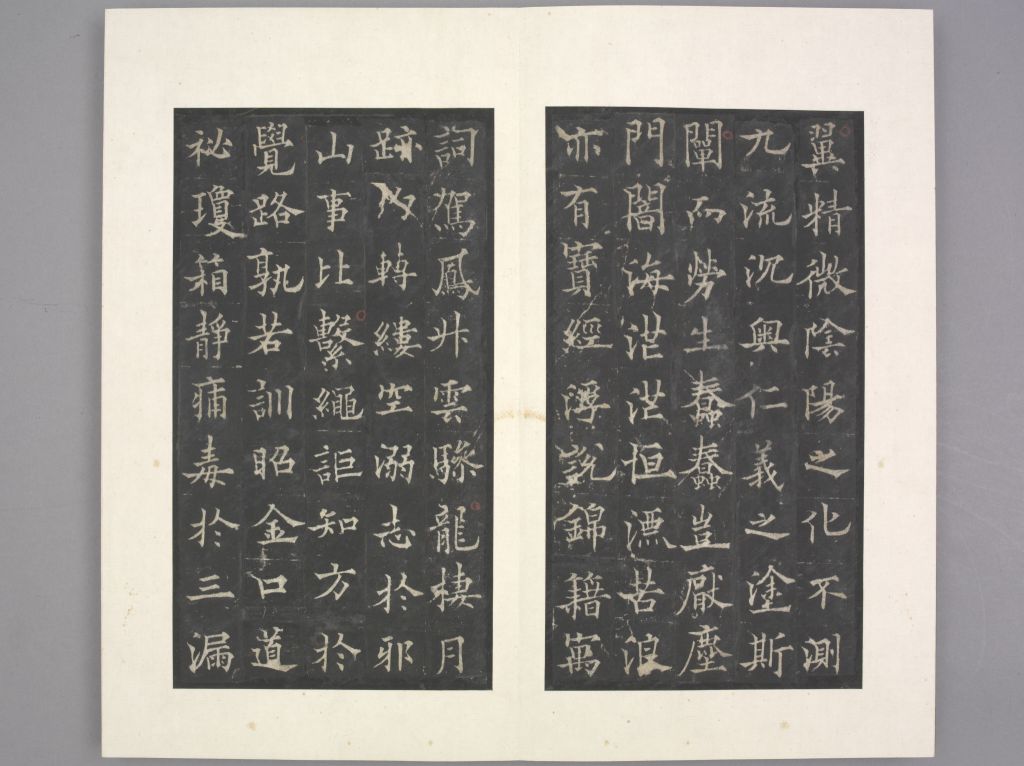 翼精微陰陽之化不測
九流沉奧仁義之塗斯
闡而勞生蠢蠢豈厭塵
門闇海茫茫恒漂苦浪
亦有寶經浮說錦籍寓
詞駕鳳升雲驂龍棲月
跡轉縷空溺志於邪
山事比繫繩詎知方於
覺路孰若訓昭金口道
祕瓊箱靜痡毒於三漏